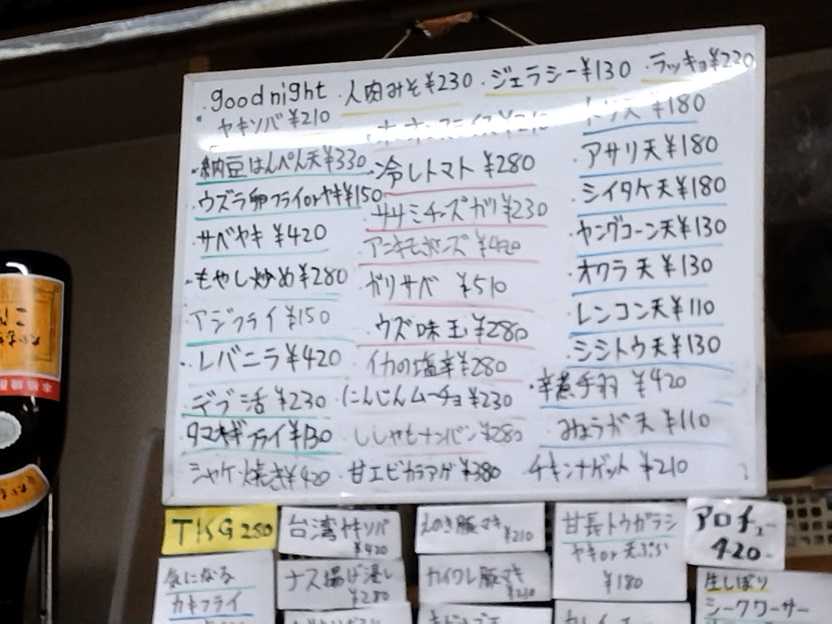 .good night
・人肉みそ¥230
・ジェラシー¥130
・ラッキョ¥220
・ヤキソバ¥210
トリ天¥180
・納豆はんぺん天¥330
・冷しトマト¥280
・アサリ天¥180
・ウズラ卵フライorヤキ¥150
・ササミチーズガリ¥230
・シイタケ天¥180
・サバヤキ¥420
・アンキモポンズ¥420
・ヤングコーン天¥130
・もやし炒め¥280
・ガリサバ ¥510
・オクラ天¥130
・アジフライ¥150
・ウズ味玉¥280
・レンコン天¥110
・レバニラ¥420
・イカの塩辛¥280
・シシトウ天¥130
・デブ活¥230
・にんじんムーチョ¥230
・辛煮手羽¥420
・タマネギフライ¥130
・ししゃもナンバン¥280
・みょうが天¥110
シャケ焼き¥420
甘エビカラアゲ¥380
チキンナゲット¥210
TKG250
台湾ヤキソバ
¥420
えのき豚マキ
¥210
甘長トウガラシ
ヤキor天ぷら
¥180
アロチュー
420-
気になる
カキフライ
ナス揚げ浸し
¥280
カイワレ豚マキ
¥210
生しぼり
シークワーサー